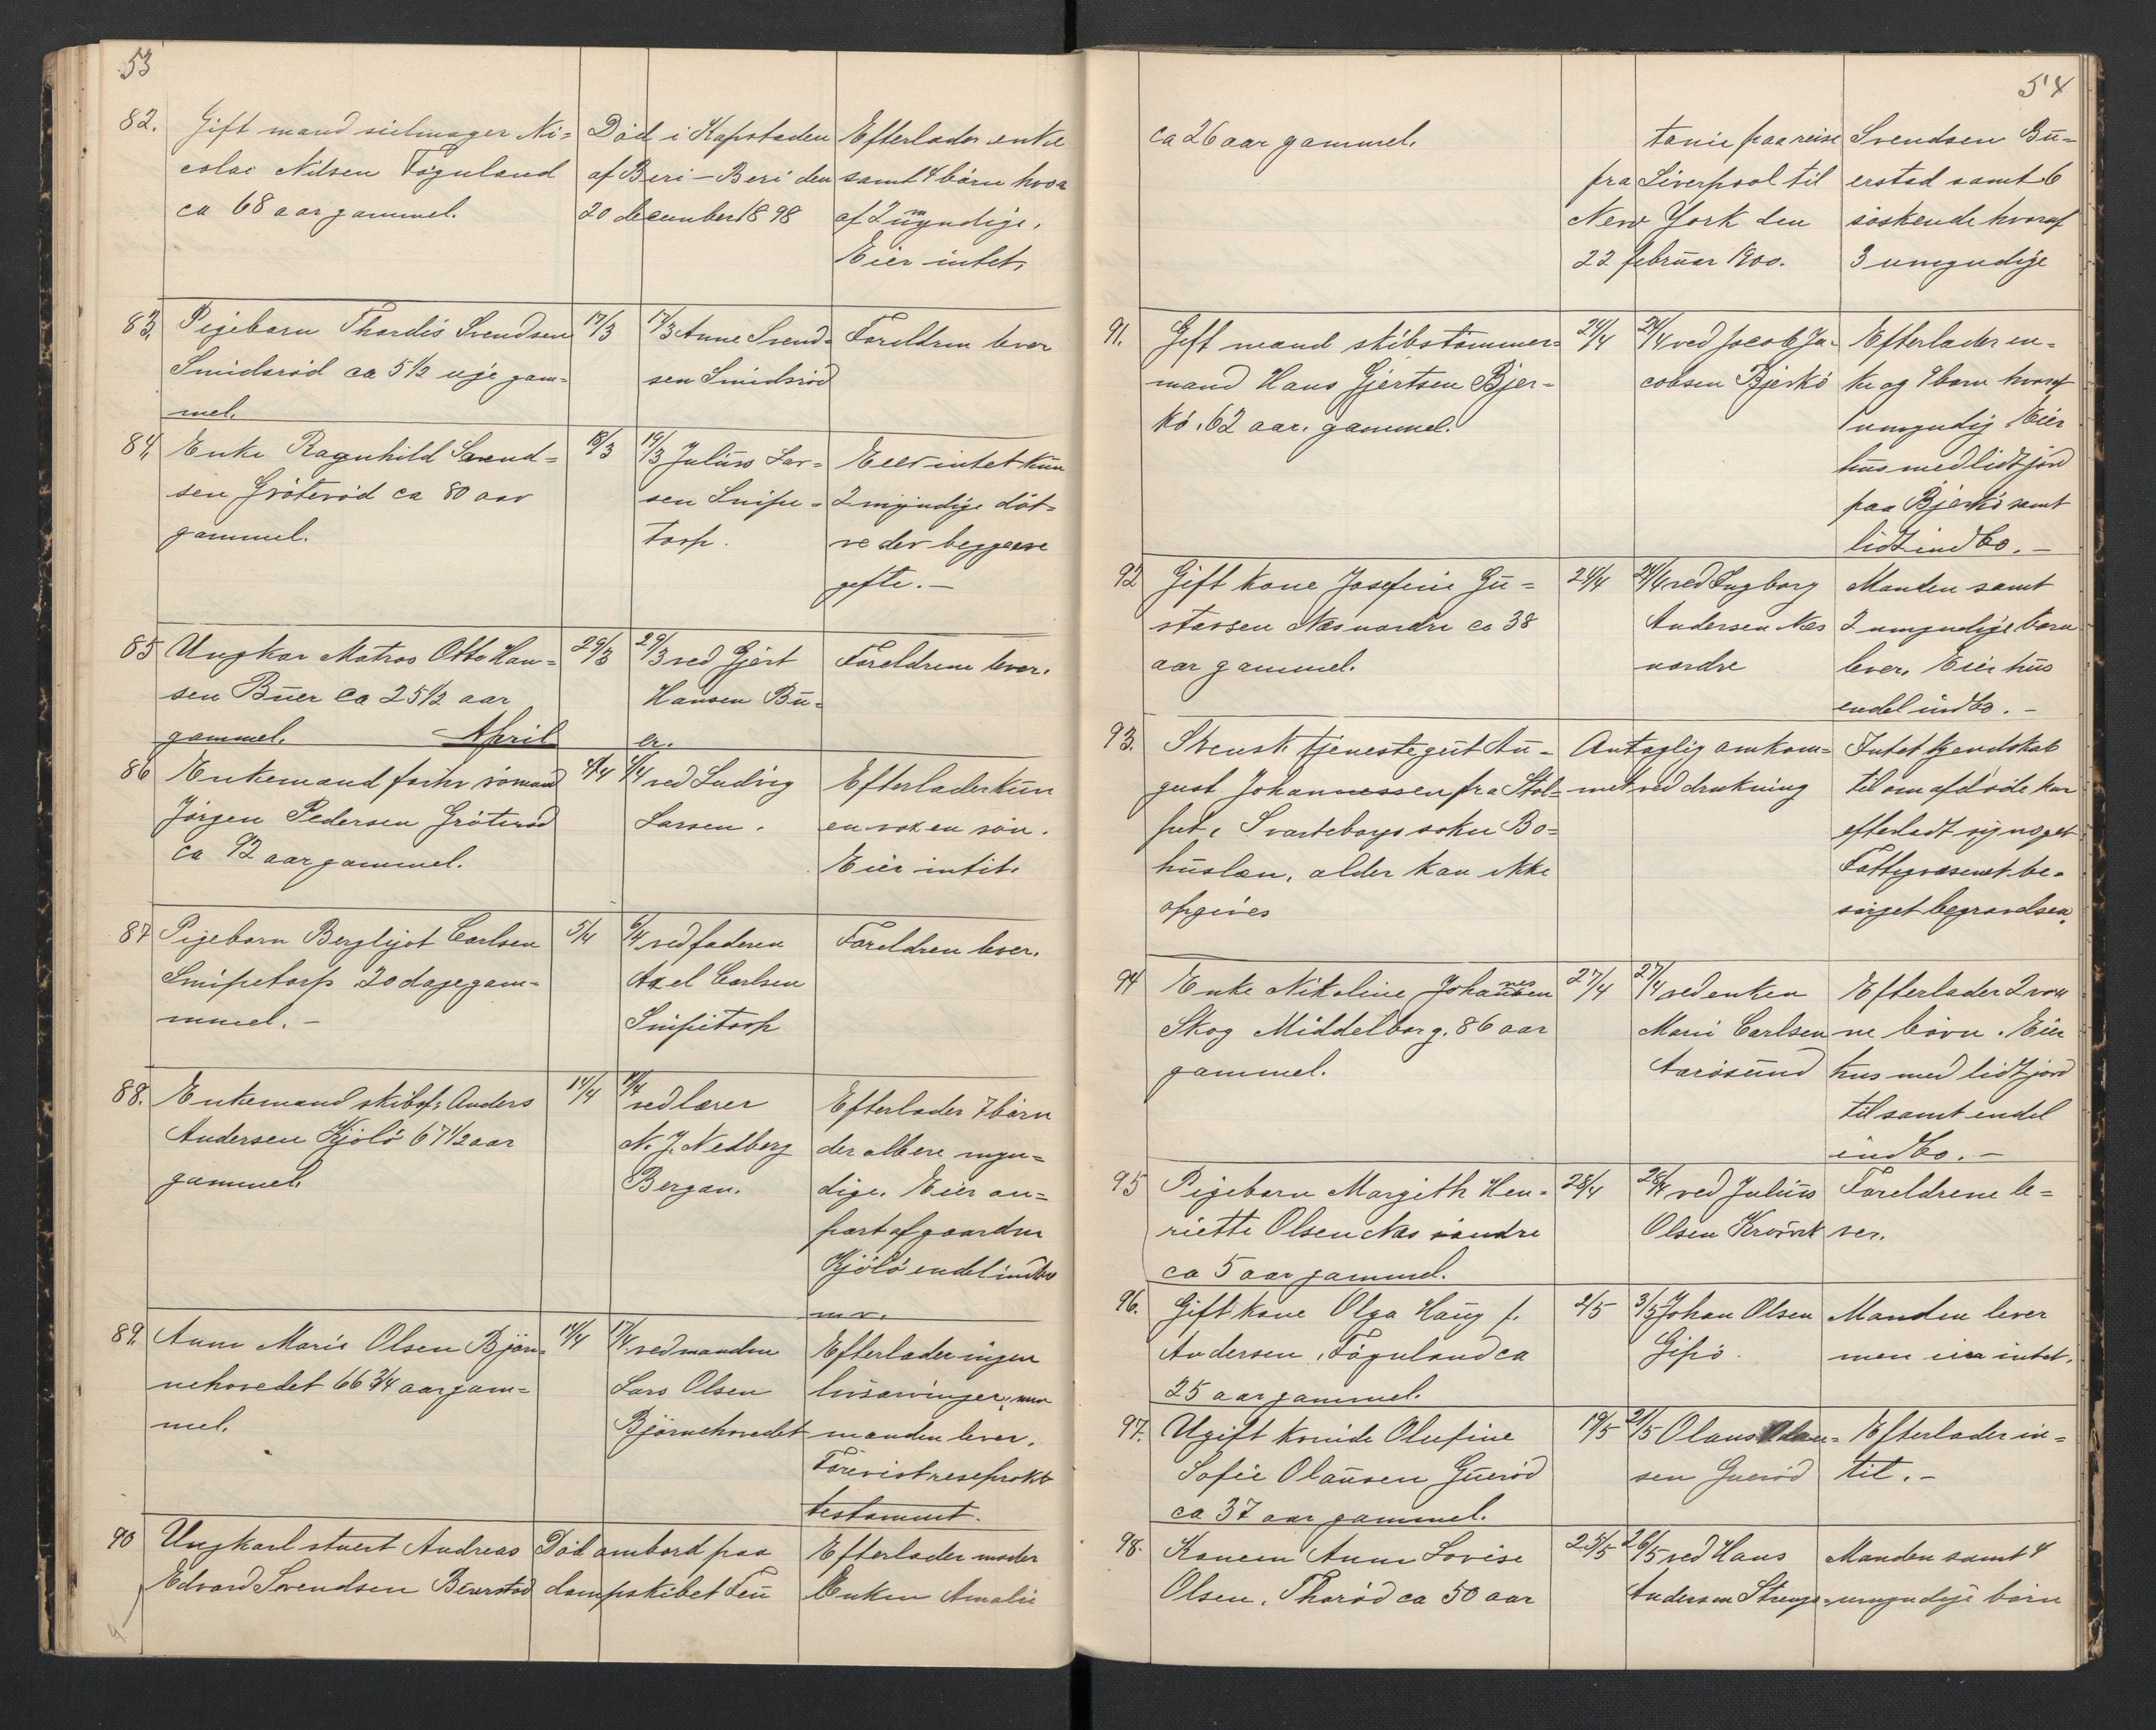 53
82. Gift mand seilmager Ni=
colai Nilsen Føguland
ca 68 aar gammel.
Död i Kapstaden
af Beri-Beri den
20 december 1898
Efterlader enke
samt 4 börn hvor
af 2 umyndige.
Eier intet.
83. Pigebarn Thordis Svendsen
Smidsröd ca 5 1/2 uge gam=
mel.
17/3
17/3 Anne Svend=
sen Smidsröd
Foreldren lever
84. Enke Ragnhild Svend=
sen Gröteröd ca 80 aar
gammel.
18/3
19/3 Julius Lar=
sen Snipe=
torp.
Eier intet kun
2 myndige döt=
re der begge ere
gifte. —
85 Ungkar Matros Otto Han=
sen Buer ca 25 1/2 aar
gammel.
29/3
29/3 ved Gjert
Hansen Bu=
er.
Foreldrene lever.
April
86 Enkemand forhv sömand
Jörgen Pedersen Gröteröd
ca 92 aar gammel.
4/4
4/4 ved Ludvig
Larsen.
Efterlader kun
en voxen sön.
Eier intet.
87 Pigebarn Bergljot Carlsen
Snipetorp 20 dage gam=
mmel. —
5/4
6/4 ved faderen
Axel Carlsen
Snipetorp
Foreldren lever.
88. Enkemand skibsf: Anders
Andersen Kjölö 67 1/2 aar
gammel.
14/4
14/4 ved lærer
N. J. Nedberg
Bergan.
Efterlader 7 börn
der alle ere myn=
dige. Eier an=
part af gaarden
Kjölö endel indbo
m.v.
89. Anne Marie Olsen Björ=
nehovedet 66 3/4 aar gam=
mel.
14/4
17/4 ved manden
Lars Olsen
Björnehovedet
Efterlader ingen
livsarvinger, men
manden lever.
Forevist resiprokt
testamnt.
90 Ungkarl stuert Andreas
Edvard Svendsen Buerstad
Död ombord paa
dampskibet Teu
Efterlader moder
Enken Amalie
54
ca 26 aar gammel.
tonic paa reise
fra Liverpool til
New York den
22 februar 1900.
Svendsen Bu=
erstad samt 6
söskende hvoraf
3 umyndige
91. Gift mand skibstömmer=
mand Hans Gjertsen Bjer=
kö. 62 aar. gammel.
24/4
24/4 ved Jacob Ja=
cobsen Bjerkö
Efterlader en=
ke og 9 barn hvoraf
1 umyndig Eier
hus med lidt jord
paa Bjerkö samt
lidt indbo. —
92 Gift kone Josefine Gu=
stavsen Næs nordre ca 38
aar gammel.
24/4
24/4 ved Ingborg
Andersen Næs
nordre
Manden samt
2 umyndige barn
lever. Eier hus
endel indbo. —
93. Svensk tjenestegut Au=
gust Johannessen fra Stol=
put, Svarteborgs sokn Bo=
huslæn, alder kan ikke
opgives
Antaglig omkom=
met ved drukning
Intet kjendskab
til om afdöde har
efterladt sig noget
Fattigvæsenet be=
sörget begravelsen.
94 Enke Nikoline Johannesen
Skog Middelborg. 86 aar
gammel.
27/4
27/4 ved enken
Marie Carlsen
Aarösund
Efterlader 2 vox
ne börn. Eier
hus med lidt jord
til samt endel
indbo. —
95 Pigebarn Margith Hen=
riette Olsen Næs söndre
ca 5 aar gammel.
28/4
28/4 ved Julius
Olsen
Foreldrene le=
ver.
96. Gift kone Olga Haug f.
Andersen, Föguland ca
25 aar gammel.
2/5
3/5 Johan Olsen
Gipö.
Manden lever
men eier intet.
97. Ugift kvinde Olufine
Sofie Olausen Gueröd
ca 37 aar gammel.
19/5
21/5 Olaus Olau=
sen Gueröd
Efterlader in=
tet. —
98. Konen Anne Lovise
Olsen, Thoröd ca 50 aar
25/5
26/5 ved Hans
Andersen Strenge
Manden samt 4
umyndige börn